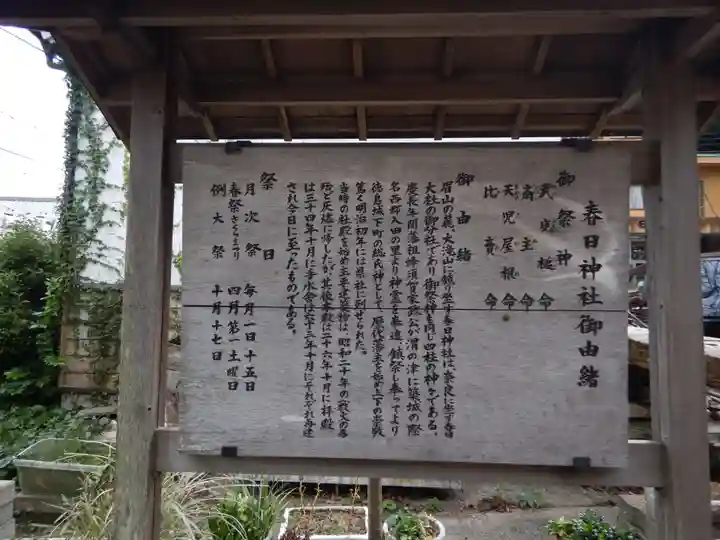 春日神社御由緒
御祭神
武甕槌命
斎主命
天児屋根命
比賣命
御由緒
眉山の麓、大滝山に鎮り坐す春日神社は、奈良に坐す春日
大社の御分社であり御祭神も同じ四柱の神々である。
慶長年間藩祖蜂須賀家政公が渭の津に築城の際
名西郡入田の里より神霊を奉遷、鎮祭し奉ってより
徳島城下町の総氏神として、歴代藩主を始め上下の崇敬
篤く明治初年には県社に列せられた。
当時の社殿を始め主要建造物は、昭和二十年の戦火の為
殆ど灰燼に帰したが其後本殿は二十六年十月に拝殿
は三十四年十月に手水舎は六十三年十月にそれぞれ再建
され今日に至ったものである。
祭日
月次祭 毎月一日十五日
春祭さくらまつり 四月第一土曜日
例大祭 十月十七日